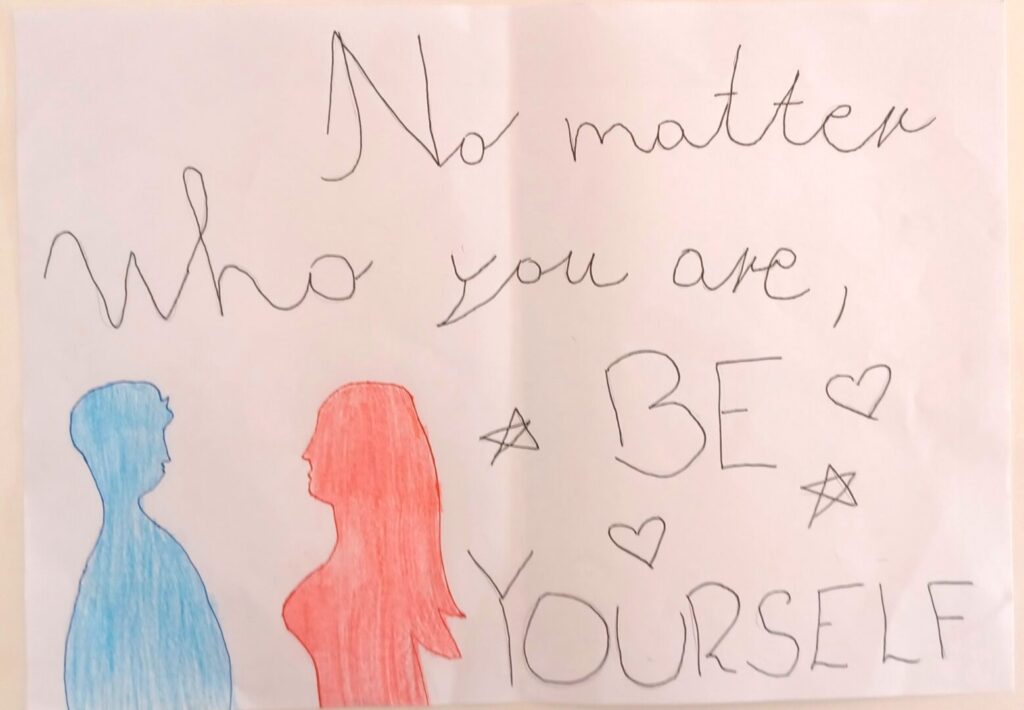 No matter
Who you are,
BE
YOURSELF